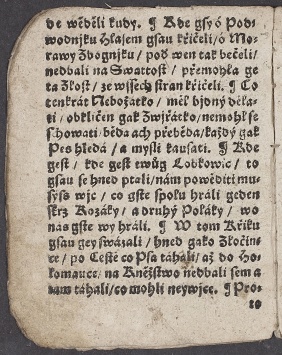 de wěděli kudy. ¶ Kde gsy ó Pod-
wodnjku Hlasem gsau křičeli / ó Mo-
rawy Zbognjku / pod wen tak bečeli /
nedbali na Swattost / přemohla ge
ta Zlost / ze wssech stran křičeli. ¶ Co
tenkrát Nebožátko / měl bjdný děla-
ti / obkljčen gak Zwjřátko / nemohl se
schowati / běda ach přeběda / každý gak
Pes hledá / a mysli kausati. ¶ Kde
gest / kde gest twůg Lobkowic / to
gsau se hned ptali / nám powěditi mu-
sýs wjc / co gste spolu hráli geden
skrz Kozáky / a druhý Poláky / wo
nás gste wy hráli. ¶ W tom Křiku
gsau gey swázali / hned gako Zločin-
ce / po Cestě co Psa táhali / až do Ho-
lomauce / na Kněžstwo nedbali sem a
tam táhali / co mohli neywjce. ¶ Pro-
to